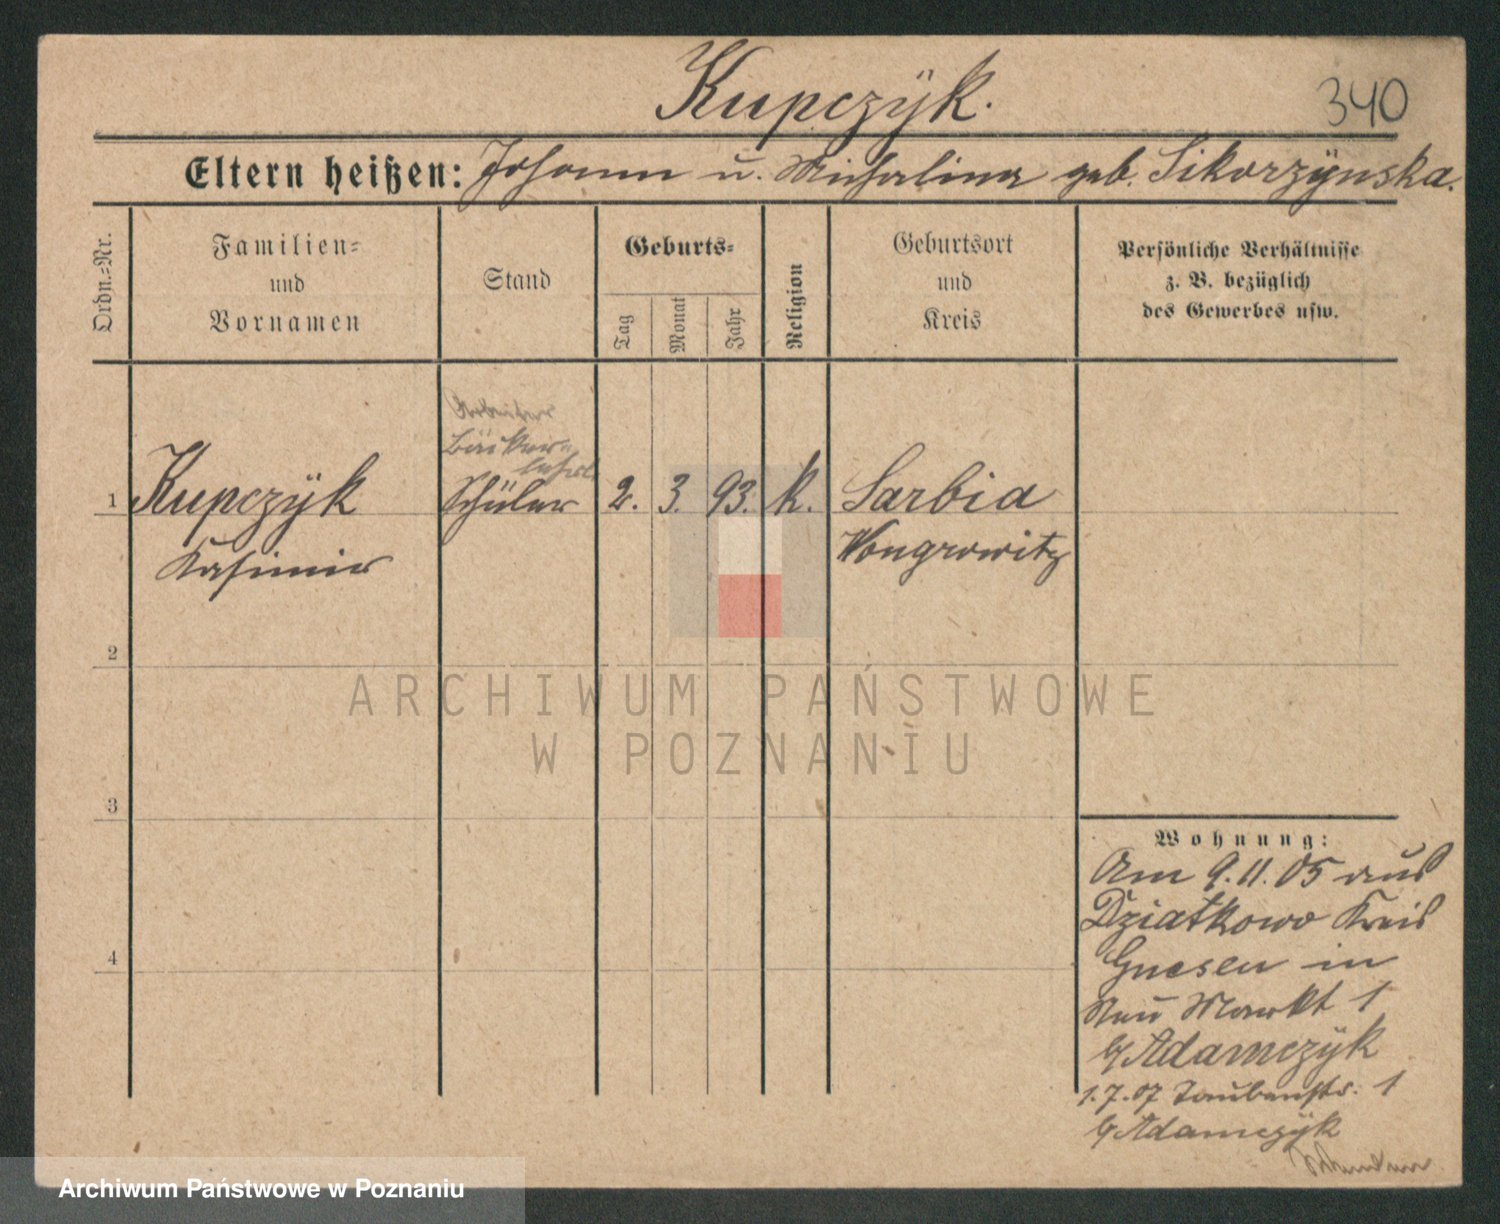 Kupczÿk.
340
Eltern heißen: Johann u. Michalina geb. Sikorzÿnska.
Ordn.=Nr.
Familien=
und
Vornamen
Stand
Geburts=
Tag
Monat
Jahr
Religion
Geburtsort
und
Kreis
Persönliche Verhältnisse
z. B. bezüglich
des Gewerbes usw.
Arbeiter
Bäcker=
lehrl.
1 Kupczÿk Schüler 2. 3. 93. k. Sarbia
Kasimir Wongrowitz
2
ARCHIWUM PAŃSTWOWE
W POZNANIU
3
Wohnung:
Am 9.11.05 aus
Dziatkowo Kreis
Gnesen in
4
Neu Markt 1
b/ Adamczÿk
1.7.07 Taubenstr. 1
b/ Adamczÿk
Archiwum Państwowe w Poznaniu